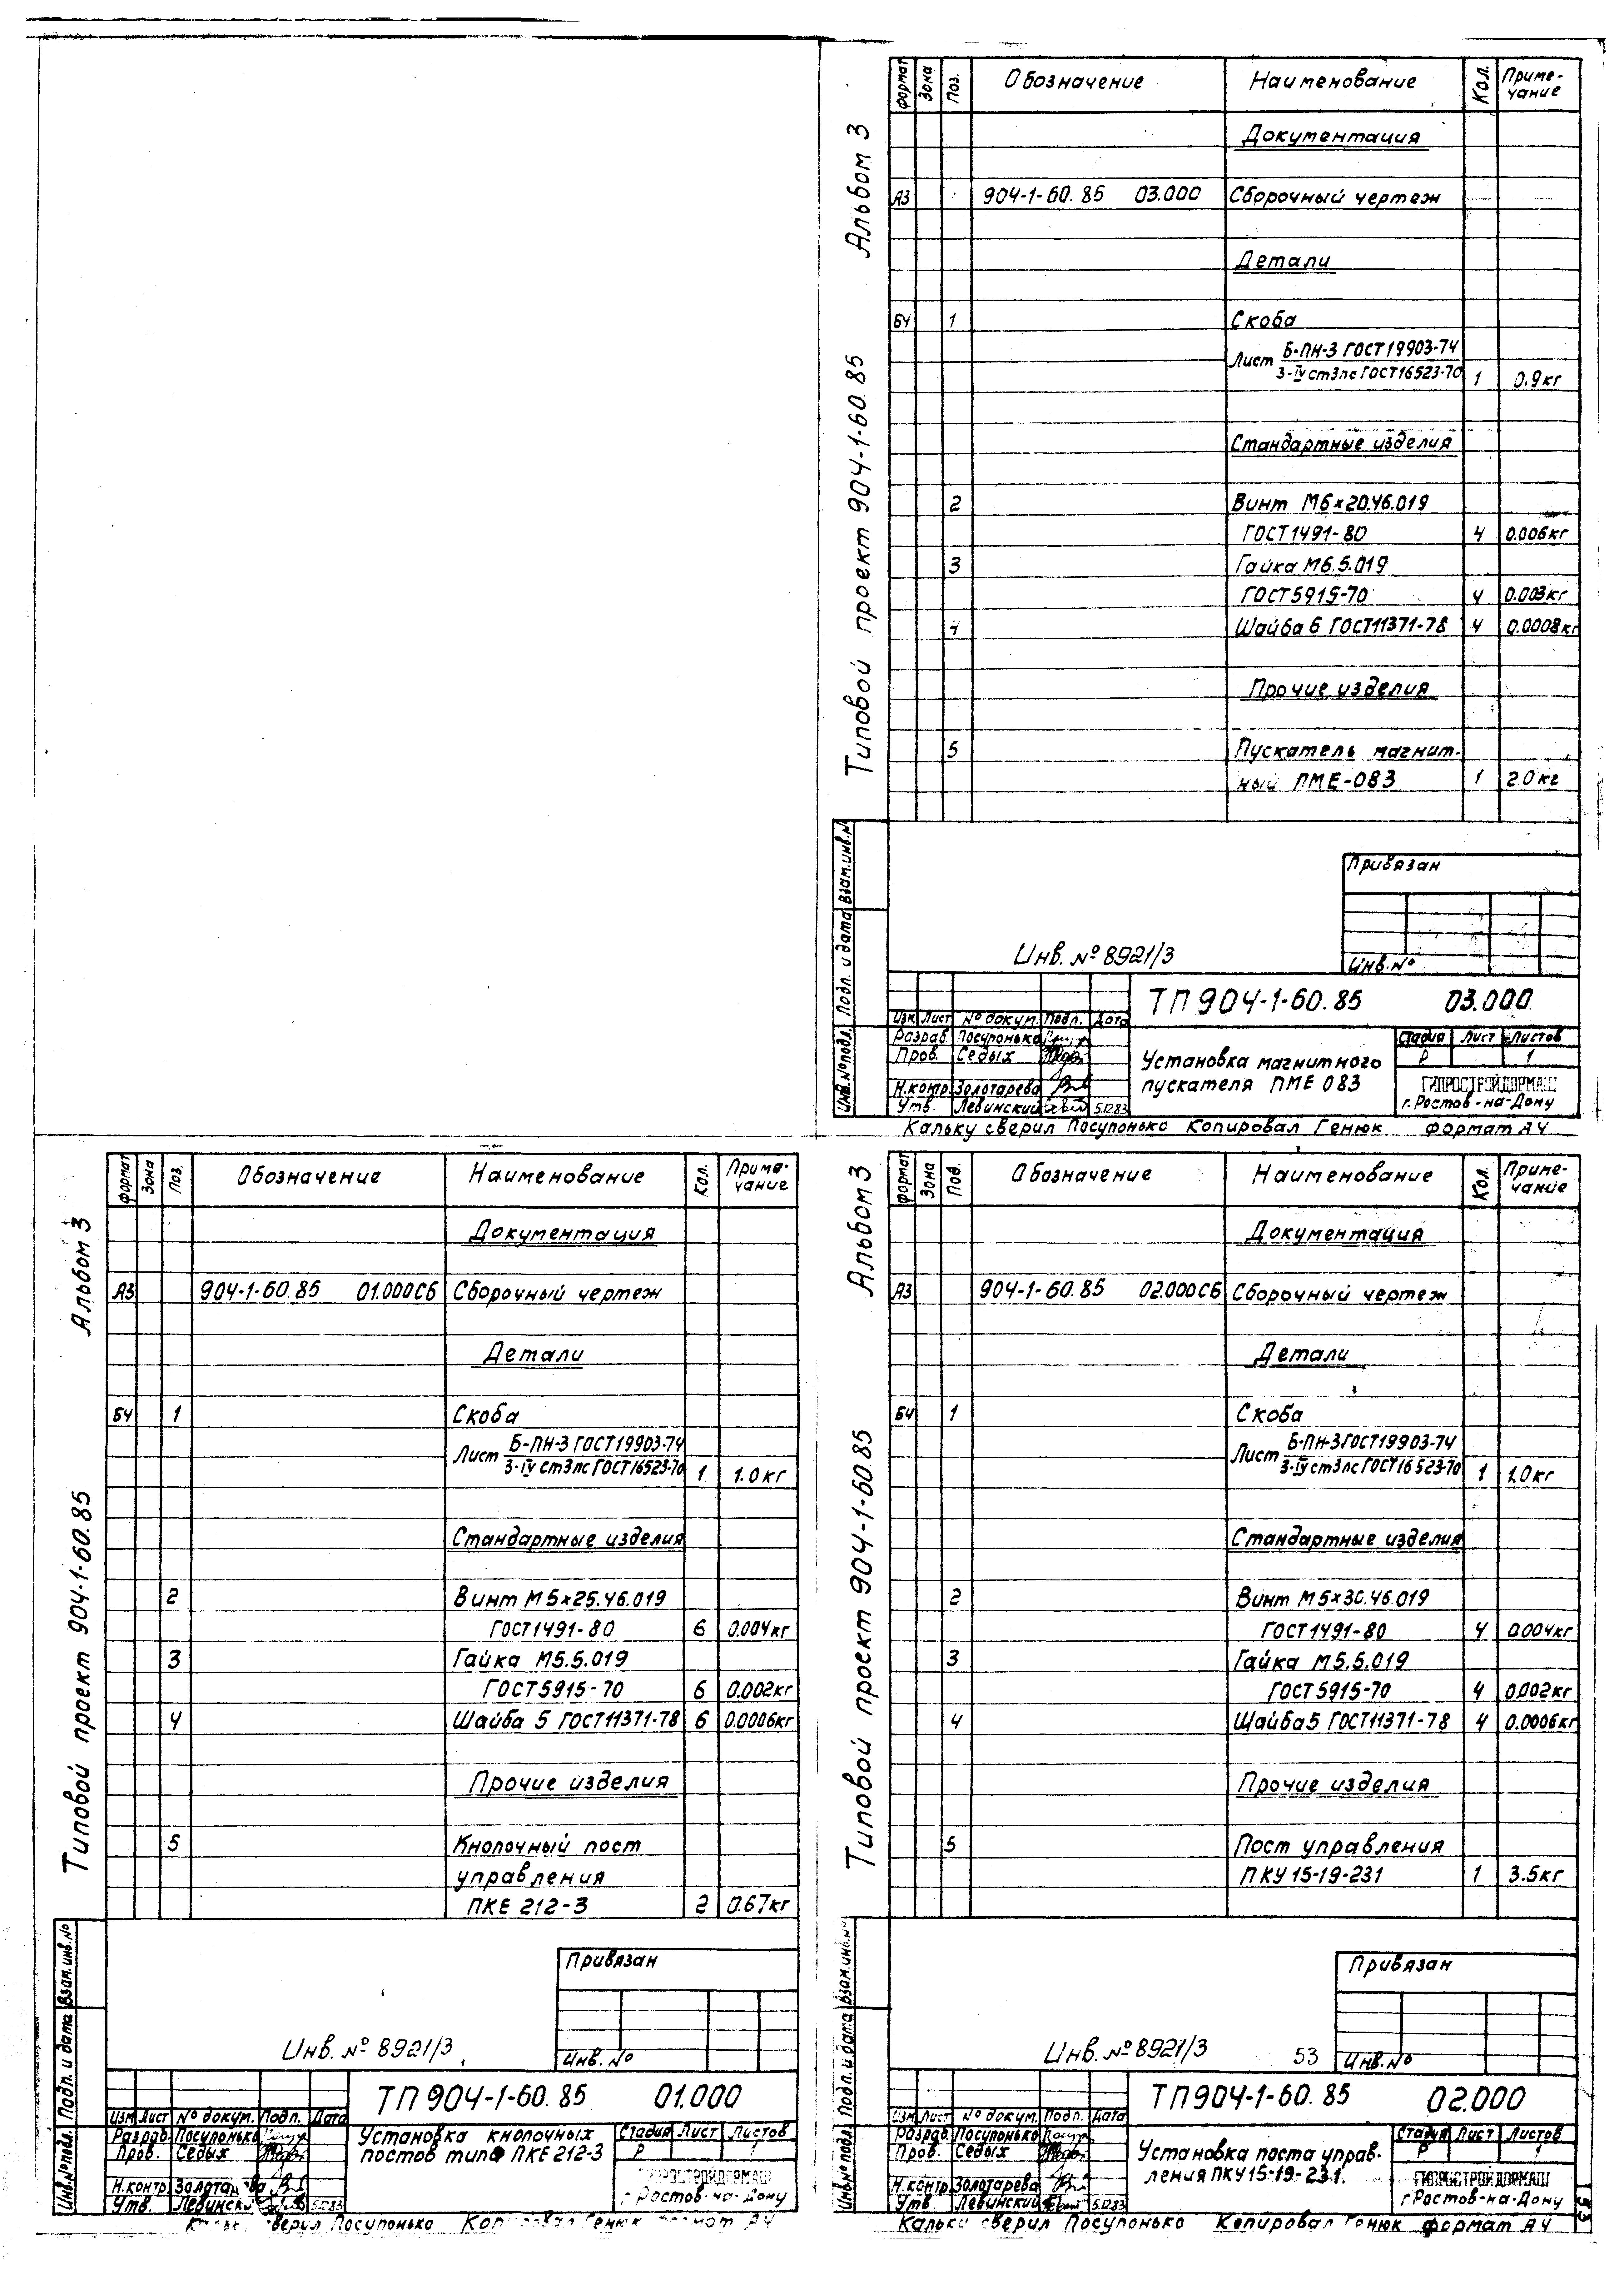 Альбом 3
Типовой проект 904-1-60.85
Формат Зона Поз. Обозначение Наименование Кол. Приме-
чание
Документация
А3 904-1-60.85 03.000 Сборочный чертеж
Детали
БЧ 1 Скоба
Лист Б-ПН-3 ГОСТ19903-74
3-IV ст3пс ГОСТ16523-70 1 0.9кг
Стандартные изделия
2 Винт М6×20.46.019
ГОСТ1491-80 4 0.006кг
3 Гайка М6.5.019
ГОСТ5915-70 4 0.003кг
4 Шайба 6 ГОСТ11371-78 4 0.0008кг
Прочие изделия
5 Пускатель магнит-
ный ПМЕ-083 1 2.0кг
Взам.инв.№
Подп. и дата
Инв.№подл.
Привязан
Инв. № 8921/3
Инв.№
ТП 904-1-60.85 03.000
Изм Лист № докум. Подп. Дата
Разраб Посупонько
Пров. Седых
Н.контр. Золотарева
Утв. Левинский 5.12.83
Установка магнитного
пускателя ПМЕ 083
Стадия Лист Листов
Р 1
ГИПРОСТРОЙДОРМАШ
г.Ростов-на-Дону
Кальку сверил Посупонько Копировал Генюк формат А4
Альбом 3
Типовой проект 904-1-60.85
Формат Зона Поз. Обозначение Наименование Кол. Приме-
чание
Документация
А3 904-1-60.85 01.000СБ Сборочный чертеж
Детали
БЧ 1 Скоба
Лист Б-ПН-3 ГОСТ19903-74
3-IV ст3пс ГОСТ16523-70 1 1.0кг
Стандартные изделия
2 Винт М5×25.46.019
ГОСТ1491-80 6 0.004кг
3 Гайка М5.5.019
ГОСТ5915-70 6 0.002кг
4 Шайба 5 ГОСТ11371-78 6 0.0006кг
Прочие изделия
5 Кнопочный пост
управления
ПКЕ 212-3 2 0.67кг
Взам.инв.№
Подп. и дата
Инв.№подл.
Привязан
Инв. № 8921/3
Инв. №
ТП 904-1-60.85 01.000
Изм Лист № докум. Подп. Дата
Разраб. Посупонько
Пров. Седых
Н.контр.
Утв. Левинский 5.12.83
Установка кнопочных
постов типа ПКЕ 212-3
Стадия Лист Листов
Р 1
ГИПРОСТРОЙДОРМАШ
г.Ростов-на-Дону
сверил Посупонько Генюк формат А4
Альбом 3
Типовой проект 904-1-60.85
Формат Зона Под. Обозначение Наименование Кол. Приме-
чание
Документация
А3 904-1-60.85 02.000СБ Сборочный чертеж
Детали
БЧ 1 Скоба
Лист Б-ПН-3ГОСТ19903-74
3-IV ст3пс ГОСТ16523-70 1 1.0кг
Стандартные изделия
2 Винт М5×30.46.019
ГОСТ1491-80 4 0.004кг
3 Гайка М5.5.019
ГОСТ5915-70 4 0.002кг
4 Шайба5 ГОСТ11371-78 4 0.0006кг
Прочие изделия
5 Пост управления
ПКУ15-19-231 1 3.5кг
Взам.инв.№
Подп. и дата
Инв.№подл.
Привязан
Инв. № 8921/3 53
Инв.№
ТП904-1-60.85 02.000
Изм Лист № докум. Подп. Дата
Разраб. Посупонько
Пров. Седых
Н.контр Золотарева
Утв. Левинский 5.12.83
Установка поста управ-
ления ПКУ15-19-231.
Стадия Лист Листов
Р 1
ГИПРОСТРОЙДОРМАШ
г.Ростов-на-Дону
Кальки сверил Посупонько Копировал Генюк формат А4